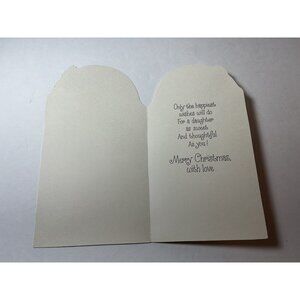 Only the happiest
wishes will do
For a daughter
as sweet
And thoughtful
As you!
Merry Christmas,
with love